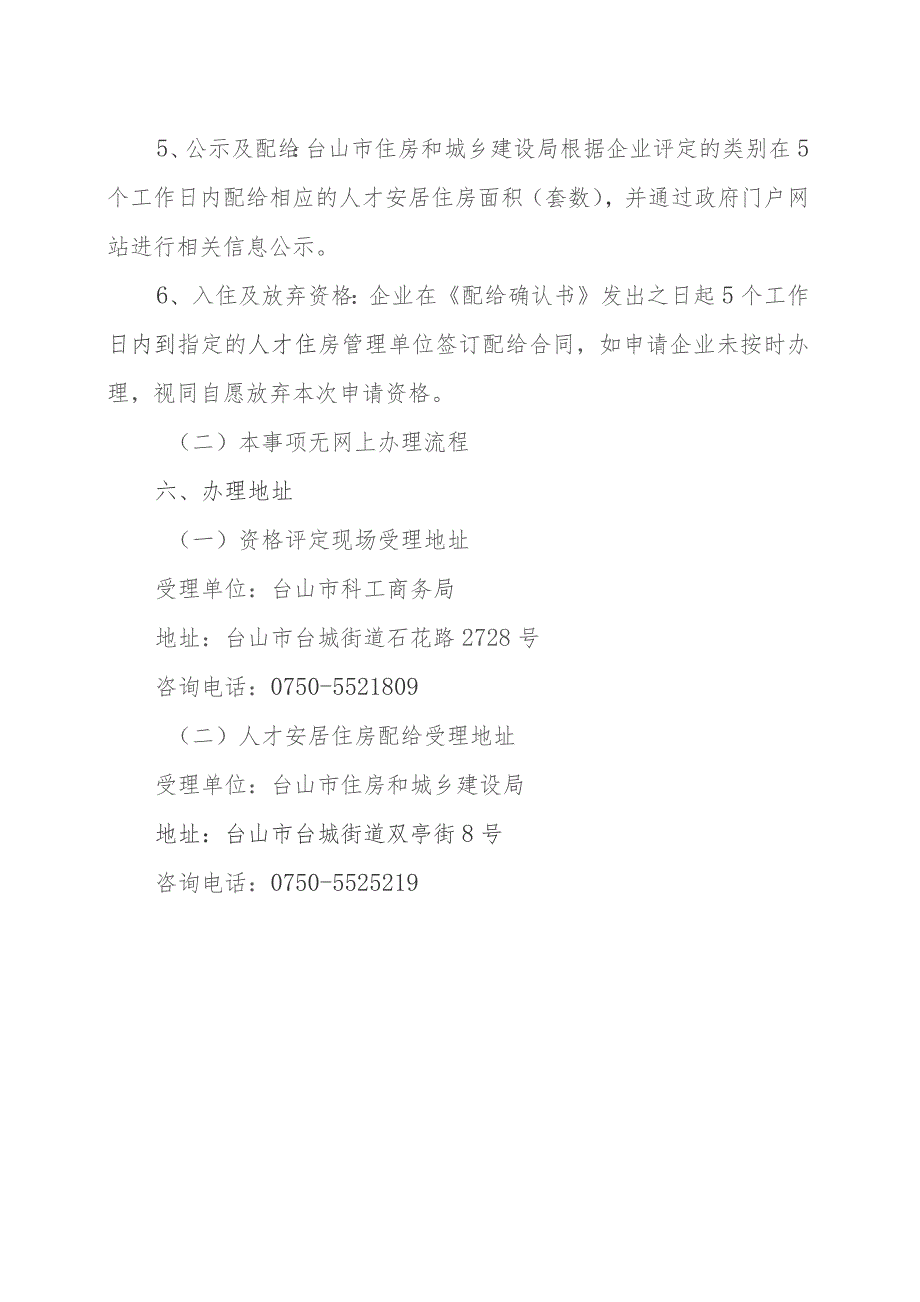 5、公示及配给:台山市住房和城乡建设局根据企业评定的类别在 5
个工作日内配给相应的人才安居住房面积（套数），并通过政府门户网
站进行相关信息公示。
6、入住及放弃资格：企业在《配给确认书》发出之日起 5 个工作
日内到指定的人才住房管理单位签订配给合同，如申请企业未按时办
理，视同自愿放弃本次申请资格。
（二）本事项无网上办理流程
六、办理地址
（一）资格评定现场受理地址
受理单位：台山市科工商务局
地址：台山市台城街道石花路 2728 号
咨询电话：0750-5521809
（二）人才安居住房配给受理地址
受理单位：台山市住房和城乡建设局
地址：台山市台城街道双亭街 8 号
咨询电话：0750-5525219